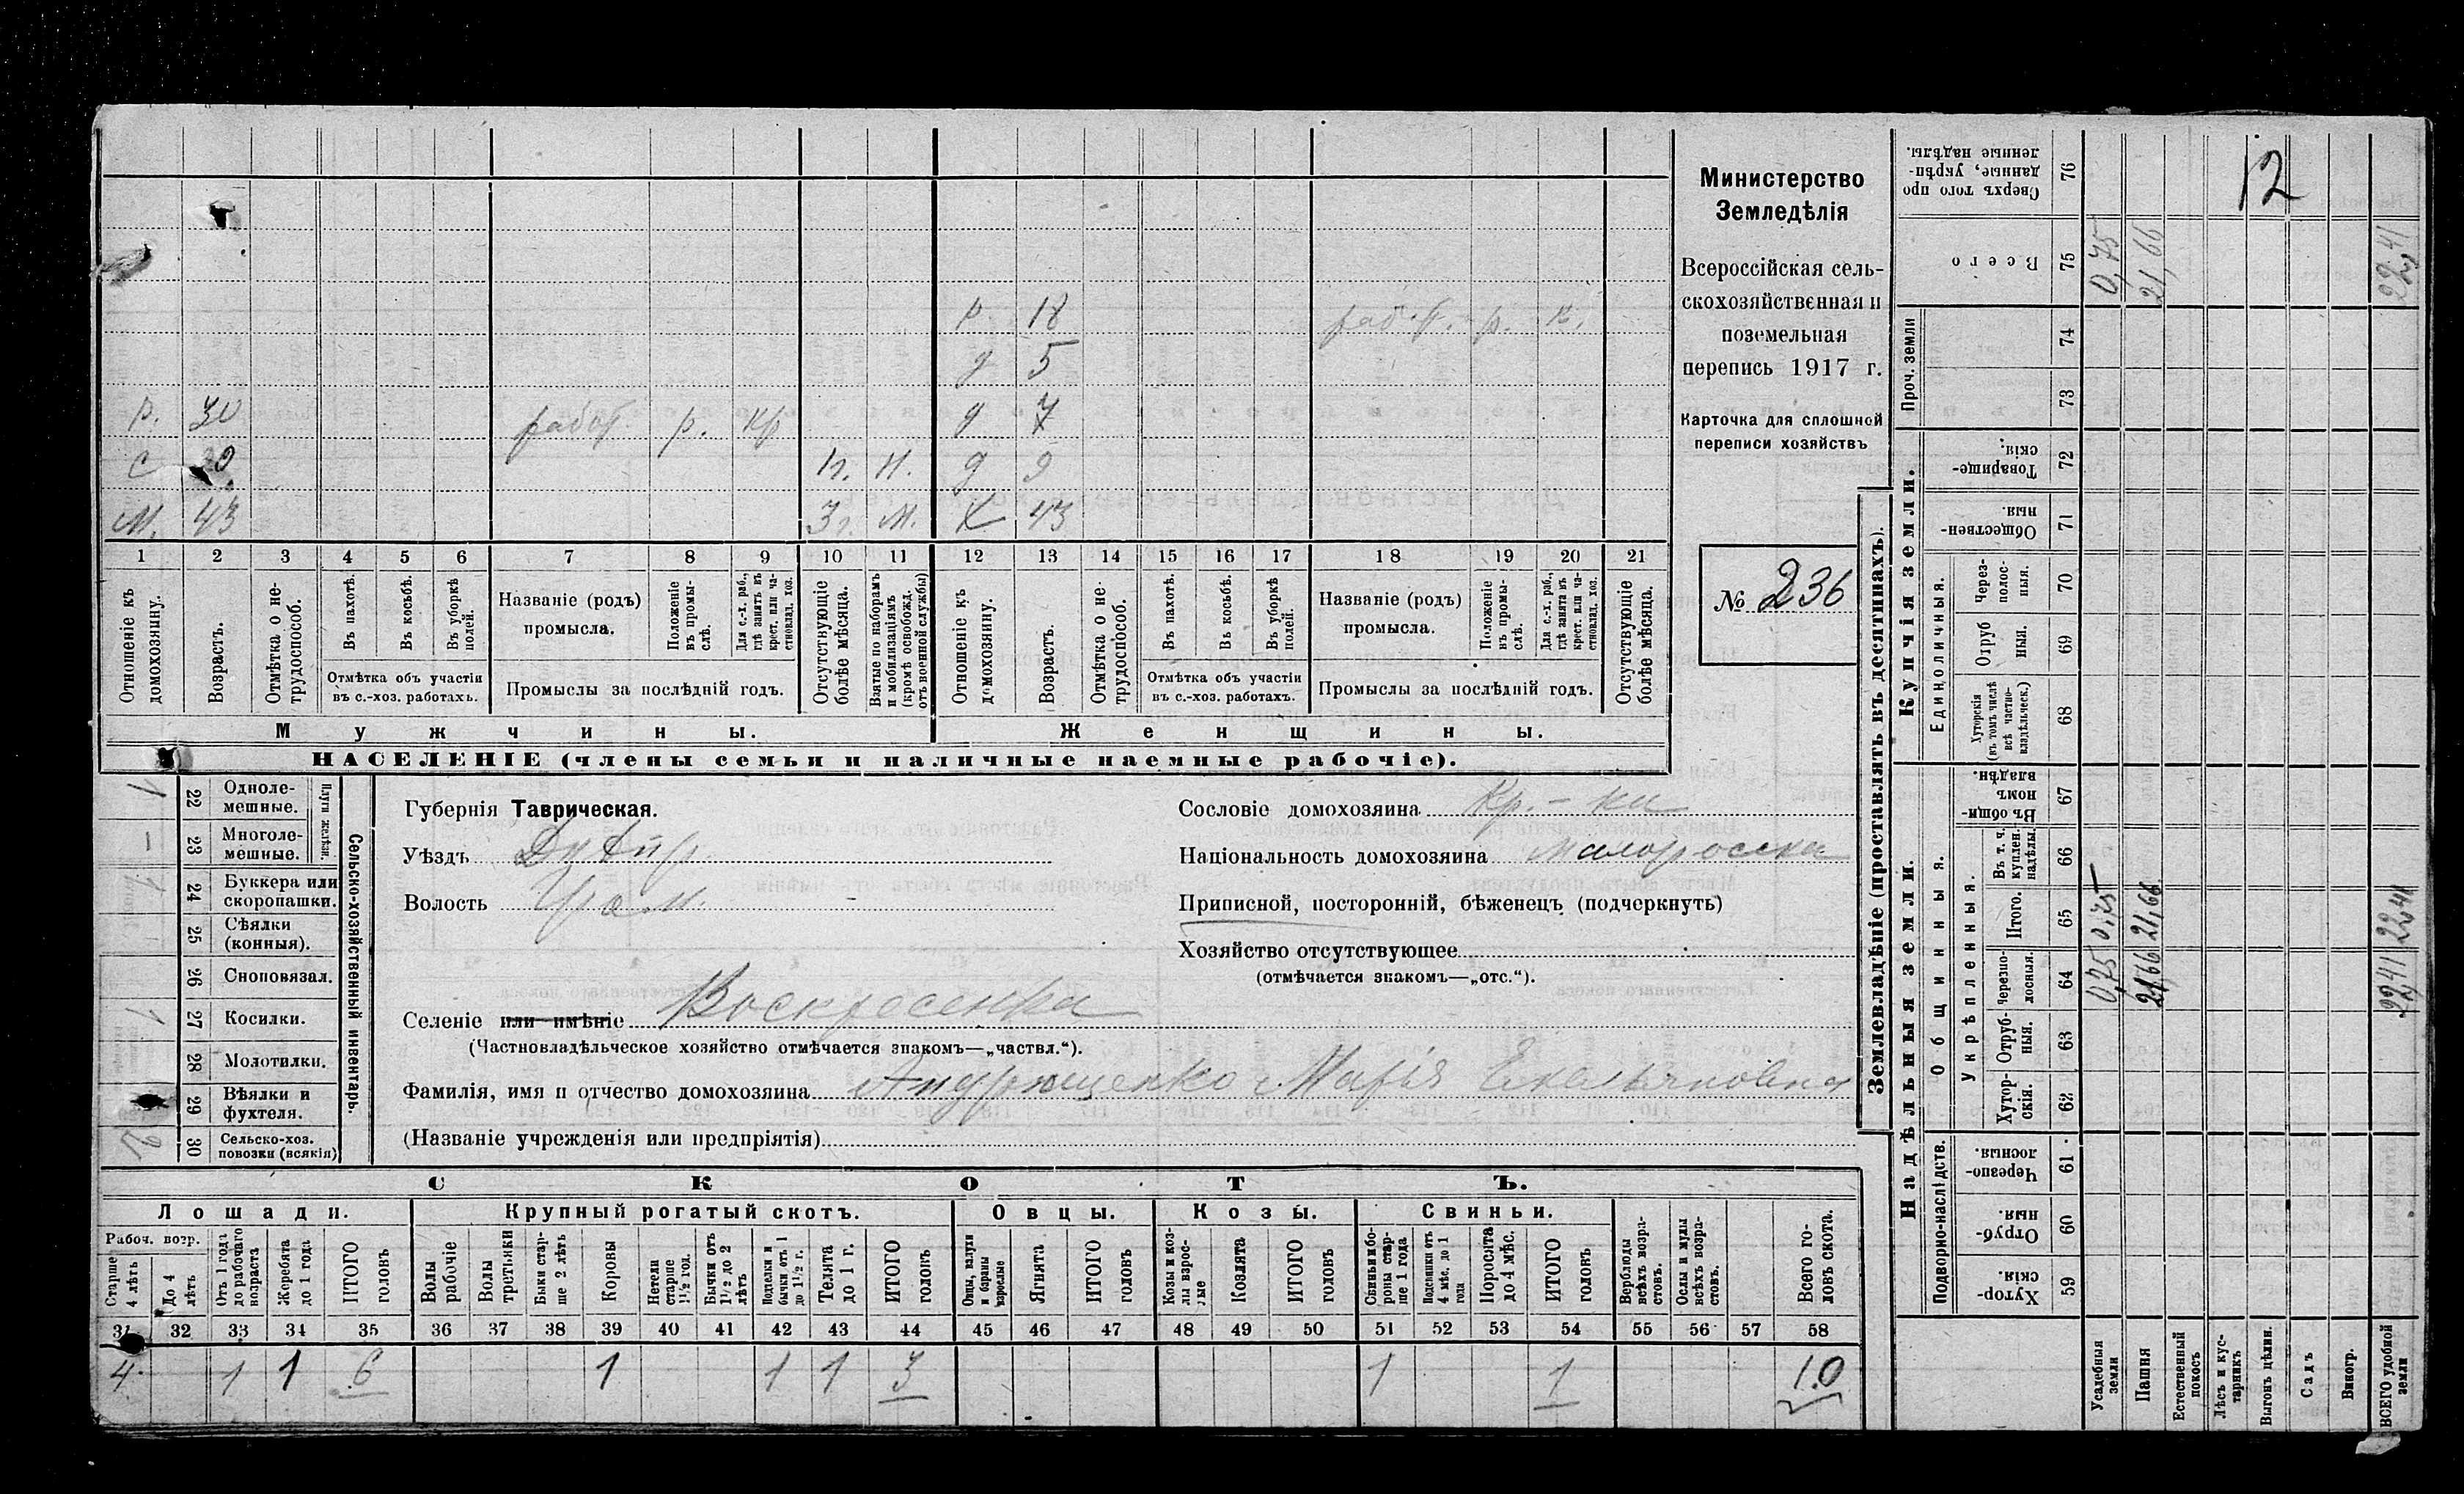 р. 18 раб.
д 5
р. 30 работ. р. кр д 7
с 20 п. н. д 9
м. 43 3 г. м. х 43
1 2 3 4 5 6 7 8 9 10 11 12 13 14 15 16 17 18 19 20 21
Отношеніе къ домохозяину.
Возрастъ.
Отмѣтка о не-трудоспособ.
Въ пахотѣ.
Въ косьбѣ.
Въ уборкѣ полей.
Отмѣтка объ участіи въ с.-хоз. работахъ.
Названіе (родъ) промысла.
Положеніе въ промы-слѣ.
Для с.-х. раб., гдѣ занятъ въ крест. или ча-стновлад. хоз.
Промыслы за послѣдній годъ.
Отсутствующіе болѣе мѣсяца.
Взятые по наборамъ и мобилизаціямъ (кромѣ освобожд. отъ военной службы)
Отношеніе къ домохозяину.
Возрастъ.
Отмѣтка о не-трудоспособ.
Въ пахотѣ.
Въ косьбѣ.
Въ уборкѣ полей.
Отмѣтка объ участіи въ с.-хоз. работахъ.
Названіе (родъ) промысла.
Положеніе въ промы-слѣ.
Для с.-х. раб., гдѣ занята въ крест. или ча-стновлад. хоз.
Промыслы за послѣдній годъ.
Отсутствующіе болѣе мѣсяца.
Мужчины.
Женщины.
НАСЕЛЕНІЕ (члены семьи и наличные наемные рабочіе).
Министерство
Земледѣлія
Всероссійская сель-
скохозяйственная и
поземельная
перепись 1917 г.
Карточка для сплошной
переписи хозяйствъ
№ 236
Сельско-хозяйственный инвентарь.
Плуги желѣзн.
1 22 Одноле-мешные.
– 23 Многоле-мешные.
1 24 Буккера или скоропашки.
25 Сѣялки (конныя).
26 Сноповязал.
1 27 Косилки.
28 Молотилки.
29 Вѣялки и фухтеля.
2 30 Сельско-хоз. повозки (всякія)
Губернія Таврическая.
Уѣздъ Днѣпр.
Волость
Селеніе или имѣніе Воскресенка
(Частновладѣльческое хозяйство отмѣчается знакомъ—„частвл.“).
Фамилія, имя и отчество домохозяина Андрющенко Марія Емельяновна
(Названіе учрежденія или предпріятія)
Сословіе домохозяина Кр.-ка
Національность домохозяина малоросска
Приписной, посторонній, бѣженецъ (подчеркнуть)
Хозяйство отсутствующее
(отмѣчается знакомъ—„отс.“).
СКОТЪ.
Лошади.
Крупный рогатый скотъ.
Овцы.
Козы.
Свиньи.
Рабоч. возр.
Старше 4 лѣтъ
До 4 лѣтъ
Отъ 1 года до рабочаго возраста
Жеребята до 1 года
ИТОГО головъ
Волы рабочіе
Волы третьяки
Быки стар-ше 2 лѣтъ
Коровы
Нетели старше 1½ год.
Бычки отъ 1½ до 2 лѣтъ
Подтелки и бычки отъ 1 до 1½ г.
Телята до 1 г.
ИТОГО головъ
Овцы, валухи и бараны взрослые
Ягнята
ИТОГО головъ
Козы и коз-лы взрос-лые
Козлята
ИТОГО головъ
Свиньи и бо-ровы стар-ше 1 года
Подсвинки отъ 4 мѣс. до 1 года
Поросята до 4 мѣс.
ИТОГО головъ
Верблюды всѣхъ возра-стовъ.
Ослы и мулы всѣхъ возра-стовъ.
Всего го-ловъ скота.
31 32 33 34 35 36 37 38 39 40 41 42 43 44 45 46 47 48 49 50 51 52 53 54 55 56 57 58
4 1 1 6 1 1 1 3 1 1 10
Землевладѣніе (проставлять въ десятинахъ).
Надѣльныя земли.
Купчія земли.
Проч. земли
Подворно-наслѣдств.
Общинныя.
Укрѣпленныя.
Единоличныя.
Сверхъ того про данные, укрѣп-ленные надѣлы. 76
Всего 75
74
73
Товарище-скія. 72
Обществен-ныя. 71
Через-полос-ныя. 70
Отруб ныя. 69
Хуторскія (въ томъ числѣ всѣ частно-владѣльческ.) 68
Въ общи-номъ владѣн. 67
Въ т. ч. куплен. надѣлы. 66
Итого. 65
Черезпо-лосныя. 64
Отруб-ныя. 63
Хутор-скія. 62
Черезпо-лосныя. 61
Отруб-ныя. 60
Хутор-скія. 59
12
0,75 21,66 22,41
0,75 21,66 22,41
0,75 21,66 22,41
Усадебныя земли
Пашня
Естественный покосъ
Лѣсъ и кус-тарникъ
Выгонъ цѣлин.
Садъ
Виногр.
ВСЕГО удобной земли